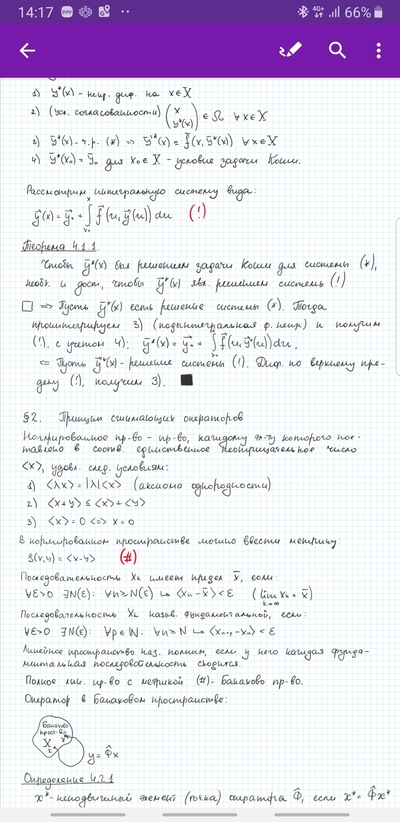 14:17
4G+
66%
1) ȳ*(x) - непр. диф. на x∈X
2) (усл. согласованности) (x ȳ*(x)) ∈ Ω ∀x∈X
3) ȳ*(x) - ч.р. (*) ⇒ ȳ'*(x) = f̄(x, ȳ*(x)) ∀x∈X
4) ȳ*(x₀) = ȳ₀ для x₀∈X - условие задачи Коши.
Рассмотрим интегральную систему вида:
ȳ(x) = ȳ₀ + ∫ₓ₀ˣ f̄(u, ȳ(u)) du (!)
Теорема 4.1.1.
Чтобы ȳ*(x) был решением задачи Коши для системы (*),
необх. и дост., чтобы ȳ*(x) явл. решением системы (!)
□ ⇒ Пусть ȳ*(x) есть решение системы (*). Тогда
проинтегрируем 3) (подынтегральная ф. непр.) и получим
(!), с учетом 4): ȳ*(x) = ȳ₀ + ∫ₓ₀ˣ f̄(u, ȳ*(u)) du.
⇐ Пусть ȳ*(x) - решение системы (!). Диф. по верхнему пре-
делу (!), получим 3). ■
§2. Принцип сжимающих операторов
Нормированное пр-во - пр-во, каждому эл-ту которого пос-
тавлено в соотв. единственное неотрицательное число
<x>, удовл. след. условиям:
1) <λx> = |λ|<x> (аксиома однородности)
2) <x+y> ≤ <x> + <y>
3) <x> = 0 <=> x = 0
В нормированном пространстве можно ввести метрику:
ρ(x,y) = <x-y> (#)
Последовательность xₖ имеет предел x̄, если:
∀ε>0 ∃N(ε): ∀n≥N(ε) ↪ <xₙ - x̄> < ε (lim xₖ = x̄) k→∞
Последовательность xₖ назыв. фундаментальной, если:
∀ε>0 ∃N(ε): ∀p∈ℕ: ∀n≥N ↪ <xₙ₊ₚ - xₙ> < ε
Линейное пространство наз. полным, если у него каждая фунда-
ментальная последовательность сходится.
Полное лин. пр-во с метрикой (#) - Банахово пр-во.
Оператор в Банаховом пространстве:
Банахово
простр-во
X
y = Φ̂x
Определение 4.2.1
x* - неподвижный элемент (точка) оператора Φ̂, если x* = Φ̂x*